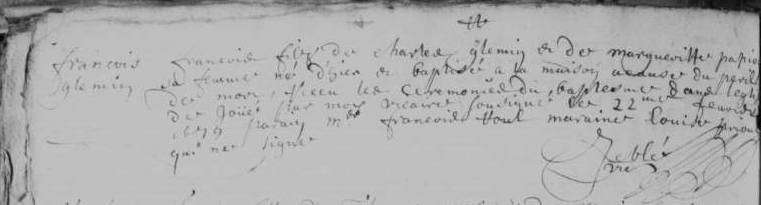 françois
glemin
françois filz de charles glemin et de margueritte papi
sa femme né d'hier et baptisé a la maison a cause du peril
de mort, receu les ceremonies du baptesme dans l'egli
de Joüé par moy vicaire soubsigné le 22me feuvrier
1679 parain mre francois marainne Louise
qui ne signe
vic